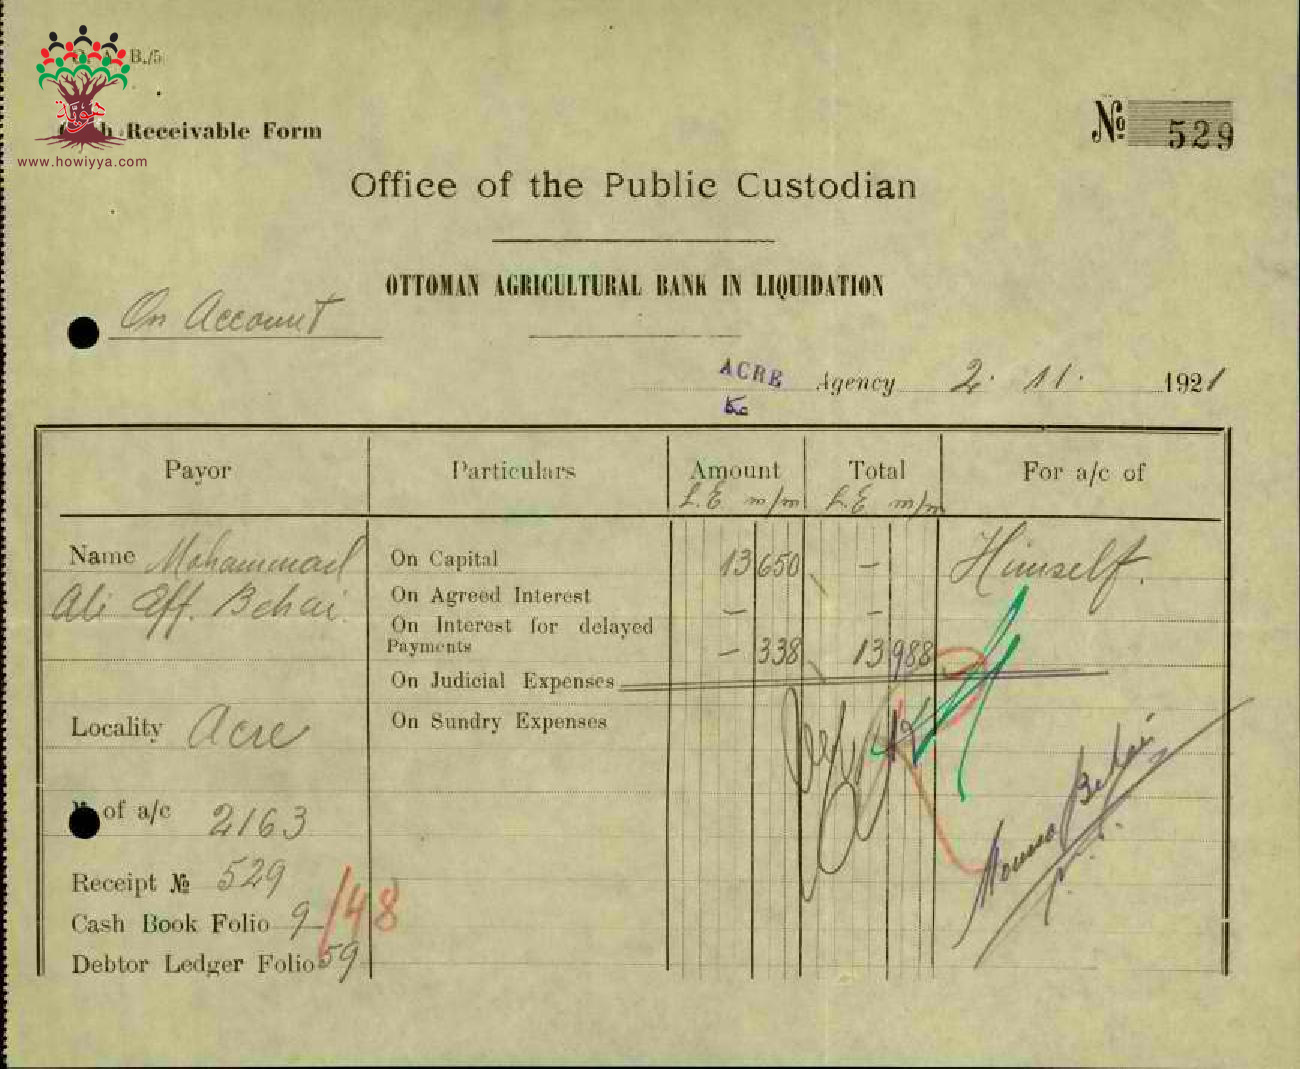 B./5
هوية
www.howiyya.com
Receivable Form
№ 529
Office of the Public Custodian
OTTOMAN AGRICULTURAL BANK IN LIQUIDATION
On Account
ACRE Agency 2. 11. 1921
Payor Particulars Amount Total For a/c of
L.E m/m L.E m/m
Name Mohammad On Capital 13 650 — Himself.
Ali Eff. Behai. On Agreed Interest — —
On Interest for delayed
Payments — 338 13 988
On Judicial Expenses
Locality Acre On Sundry Expenses
Behai
№ of a/c 2163
Receipt № 529
Cash Book Folio 9 /48
Debtor Ledger Folio 59